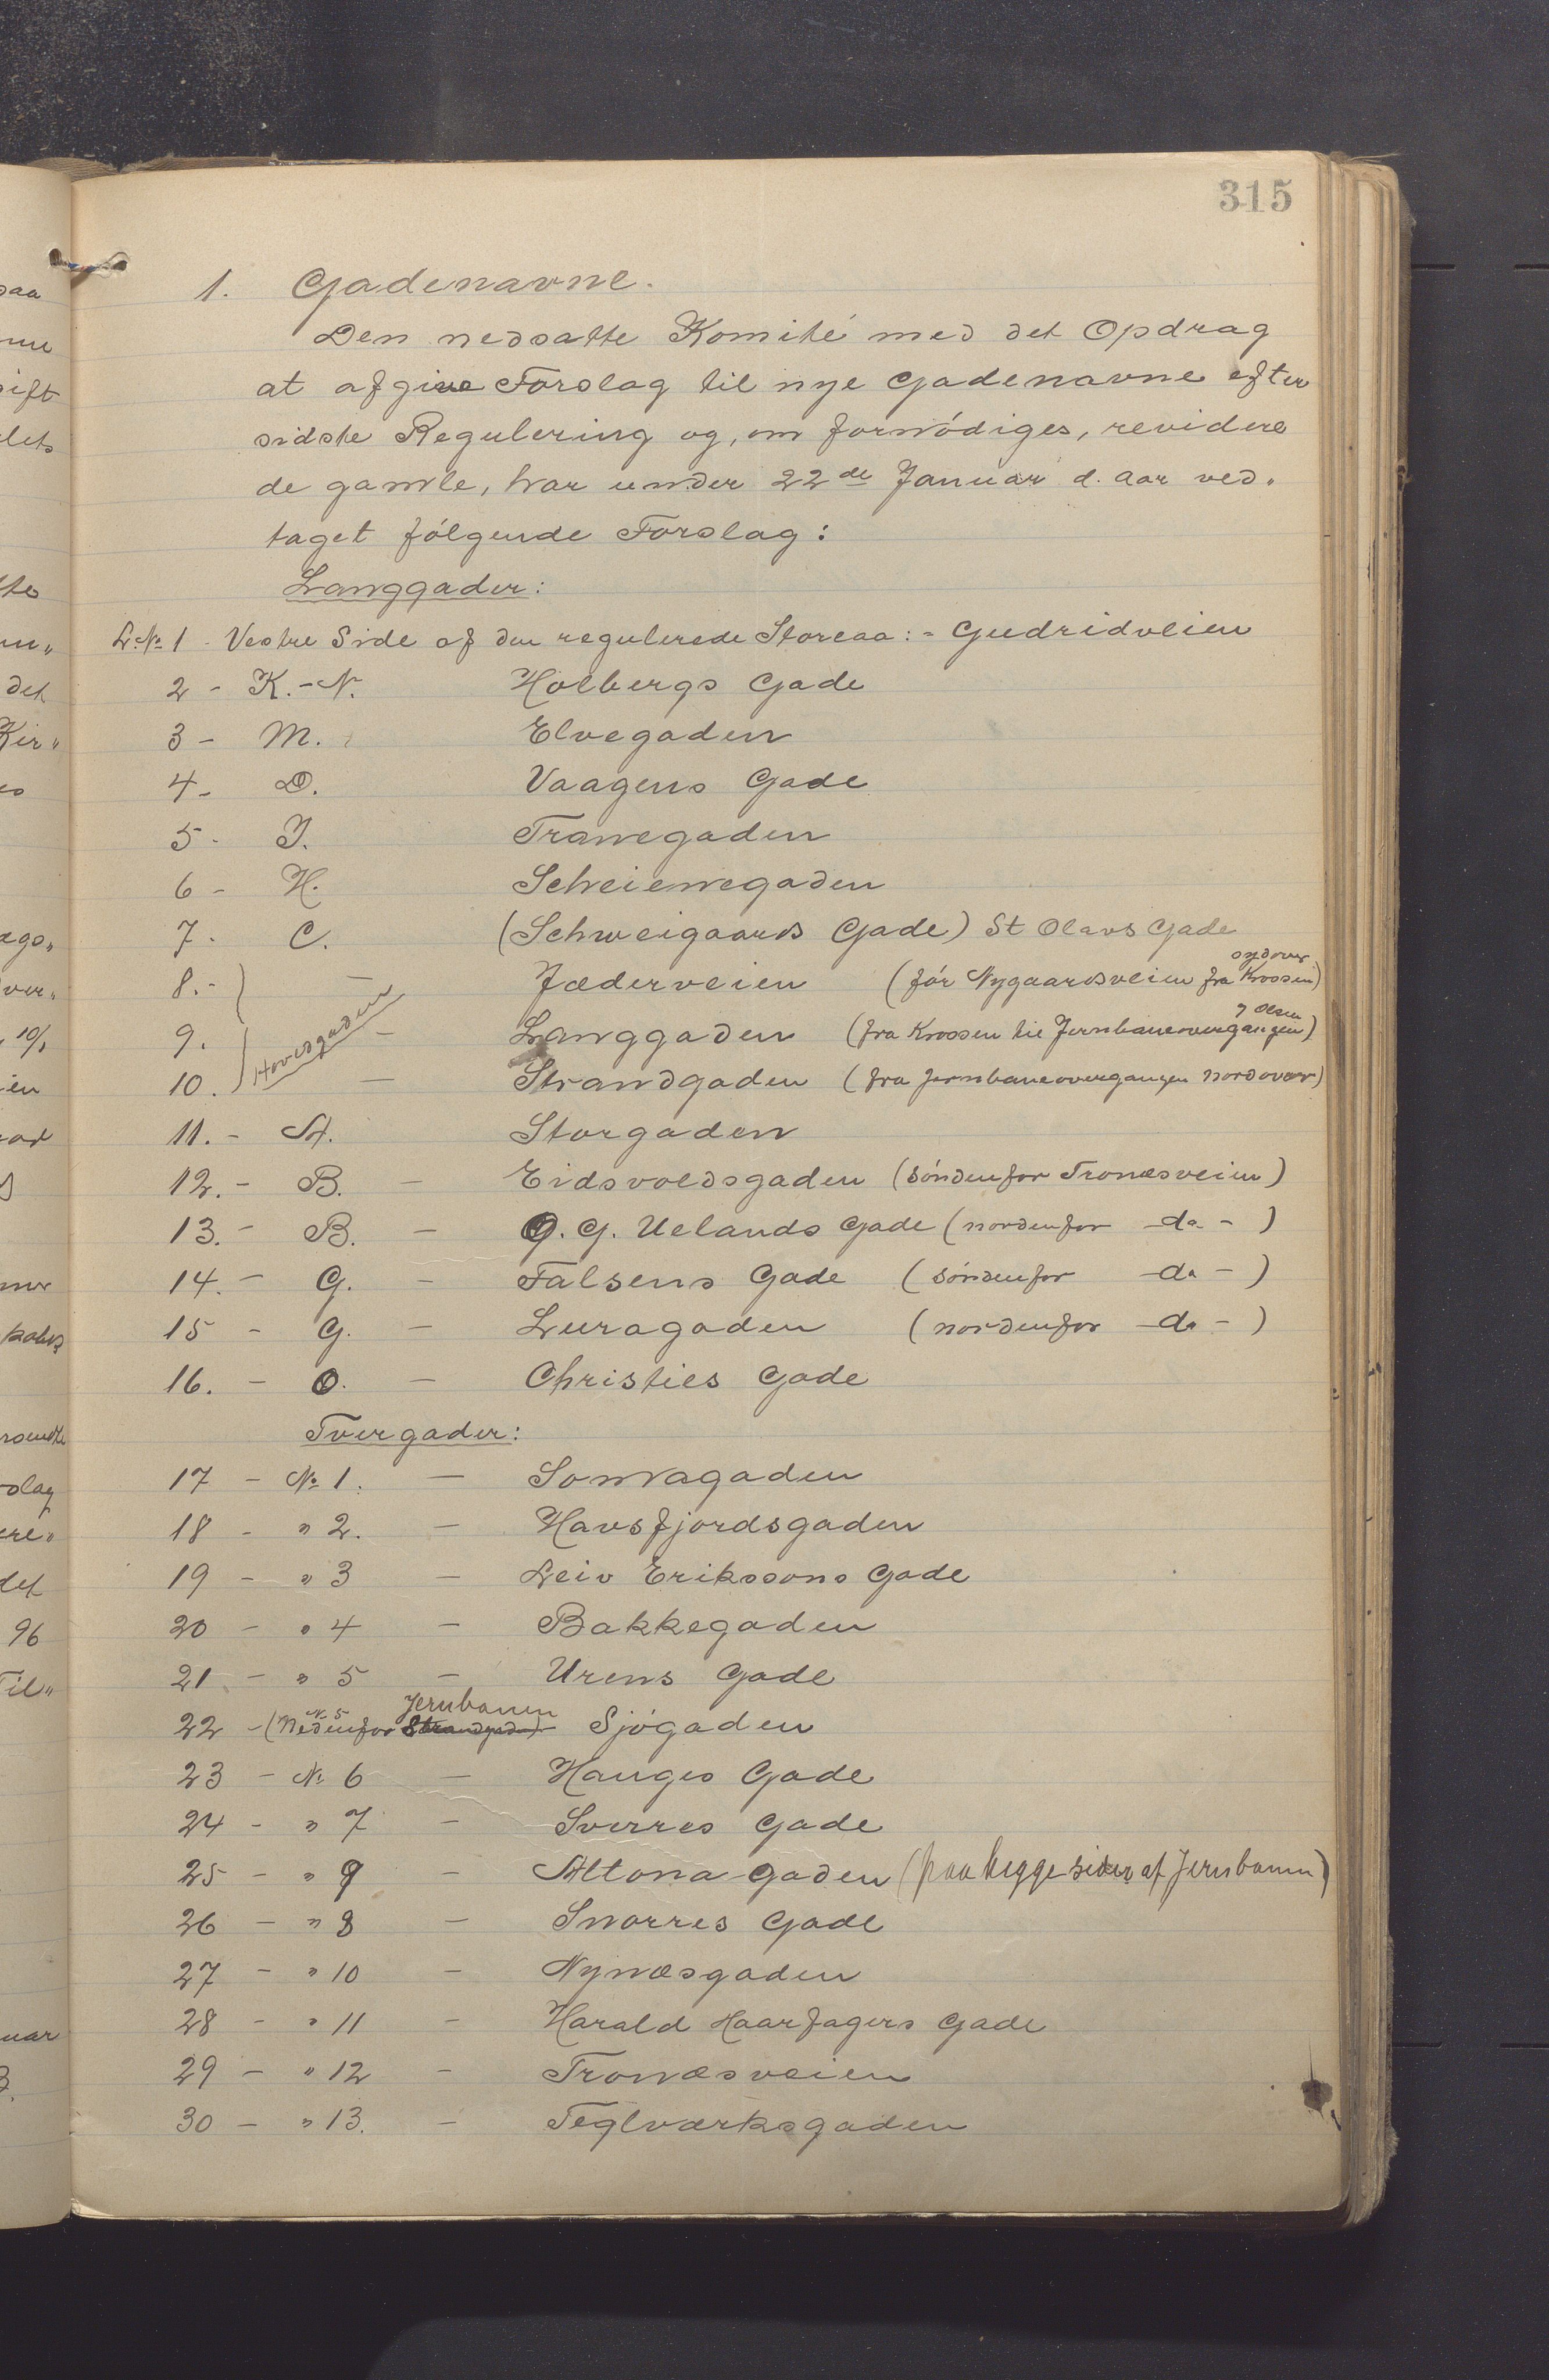 315
1. Gadenavne.
Den nedsatte Komité med det Opdrag
at afgive Forslag til nye Gadenavne efter
sidste Regulering og, om fornödiges, revidere
de gamle, har under 22de Januar d. Aar ved„
taget fölgende Forslag:
Langgader:
L. No 1 - Vestre Side af den regulerede Storeaa: = Gudridveien
2 - K.-N. Holbergs Gade
3 - M. Elvegaden
4 - D. Vaagens Gade
5 - J. Tranegaden
6 - H. Scheienegaden
7 - C. (Schweigaards Gade) St Olavs Gade
8. - — Jæderveien (för Nygaardsveien fra Krossen sydover)
9. Hovedgaden — Langgaden (fra Krossen til Jernbaneovergangen)
10. — Strandgaden (fra Jernbaneovergangen nordover)
11. - A. Storgaden
12. - B. — Eidsvoldsgaden (söndenfor Tronæsveien)
13. - B. — O. G. Uelands Gade (nordenfor - do - )
14. - G. — Falsens Gade (söndenfor - do - )
15 - G. — Luragaden (nordenfor - do - )
16. - O. — Christies Gade
Tvergader:
17 - No 1. — Somagaden
18 - " 2. — Havsfjordsgaden
19 - " 3 — Leiv Erikssons Gade
20 - " 4 — Bakkegaden
21 - " 5 — Urens Gade
22 - (No 5 Nedenfor Strandgaden) Jernbanen Sjögaden
23 - No 6 — Hauges Gade
24 - " 7 — Sverres Gade
25 - " 9 — Altona gaden (paa begge sider af Jernbanen)
26 - " 8 — Snorres Gade
27 - " 10 — Nynæsgaden
28 - " 11 - Harald Haarfagers Gade
29 - " 12 - Tronæsveien
30 - " 13. - Teglværksgaden